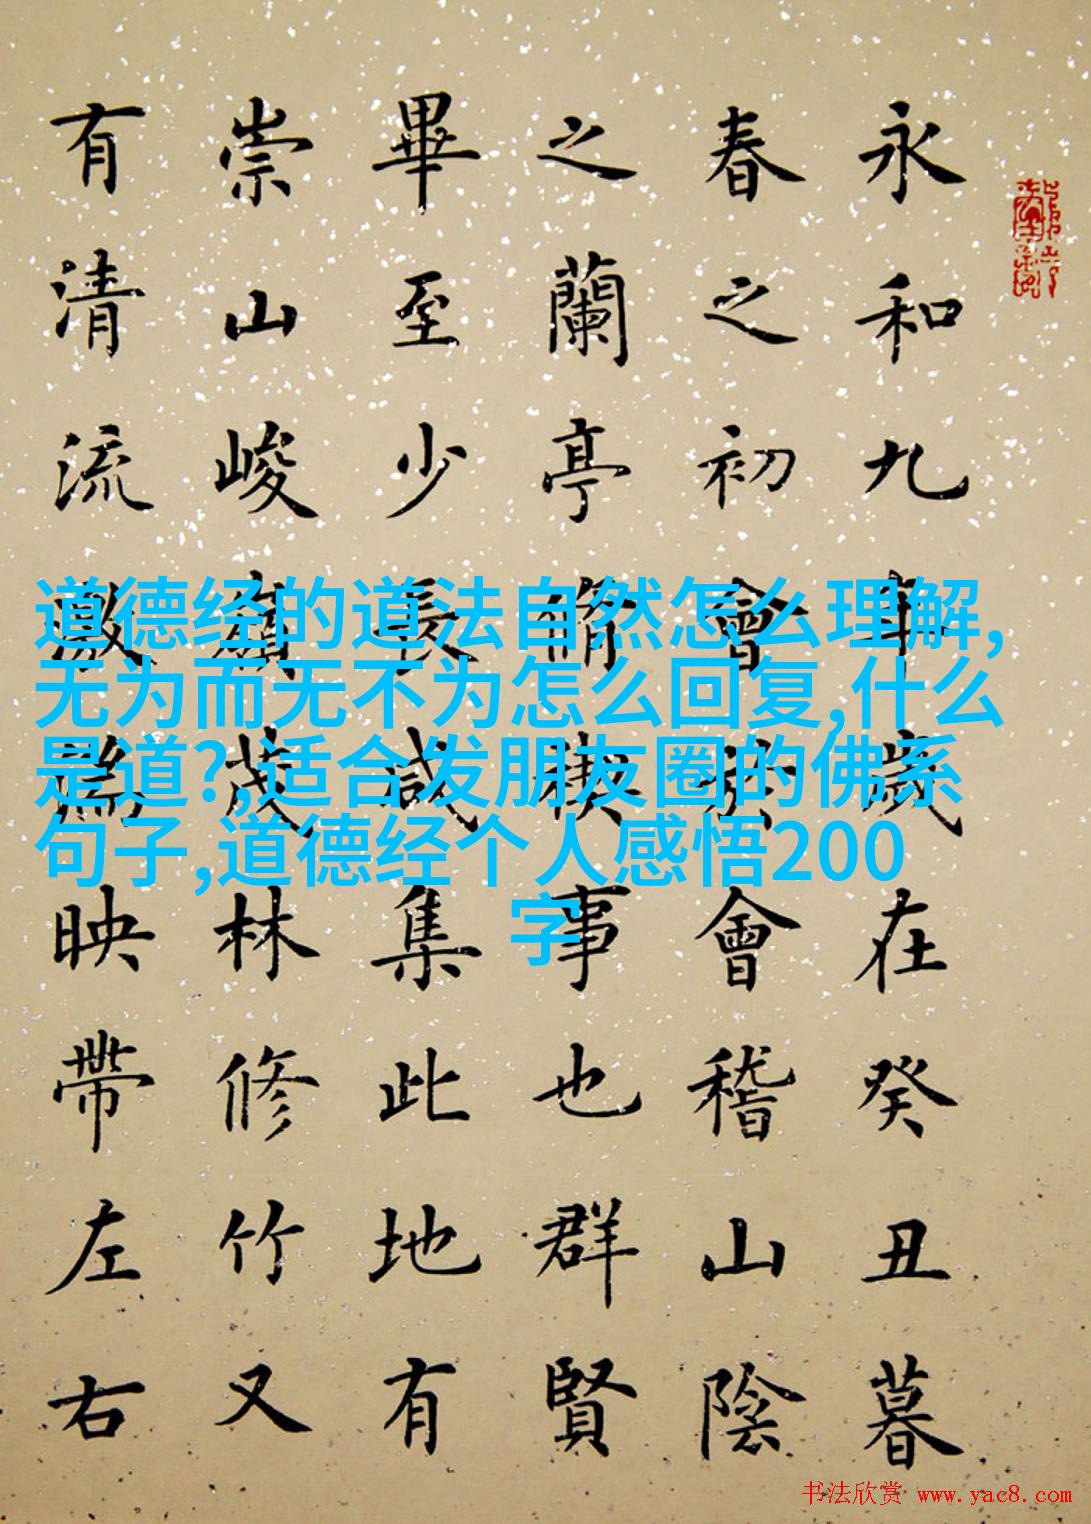 永和九年歲在癸丑暮
春之初會於會稽山陰
之蘭亭脩禊事也群賢
畢至少長咸集此地有
崇山峻嶺茂林修竹又
有清流激映帶左右
道德经的道法自然怎么理解,
无为而无不为怎么回复,什么
是道?,适合发朋友圈的佛系
句子,道德经个人感悟200
字
书法欣赏 www.yac8.com